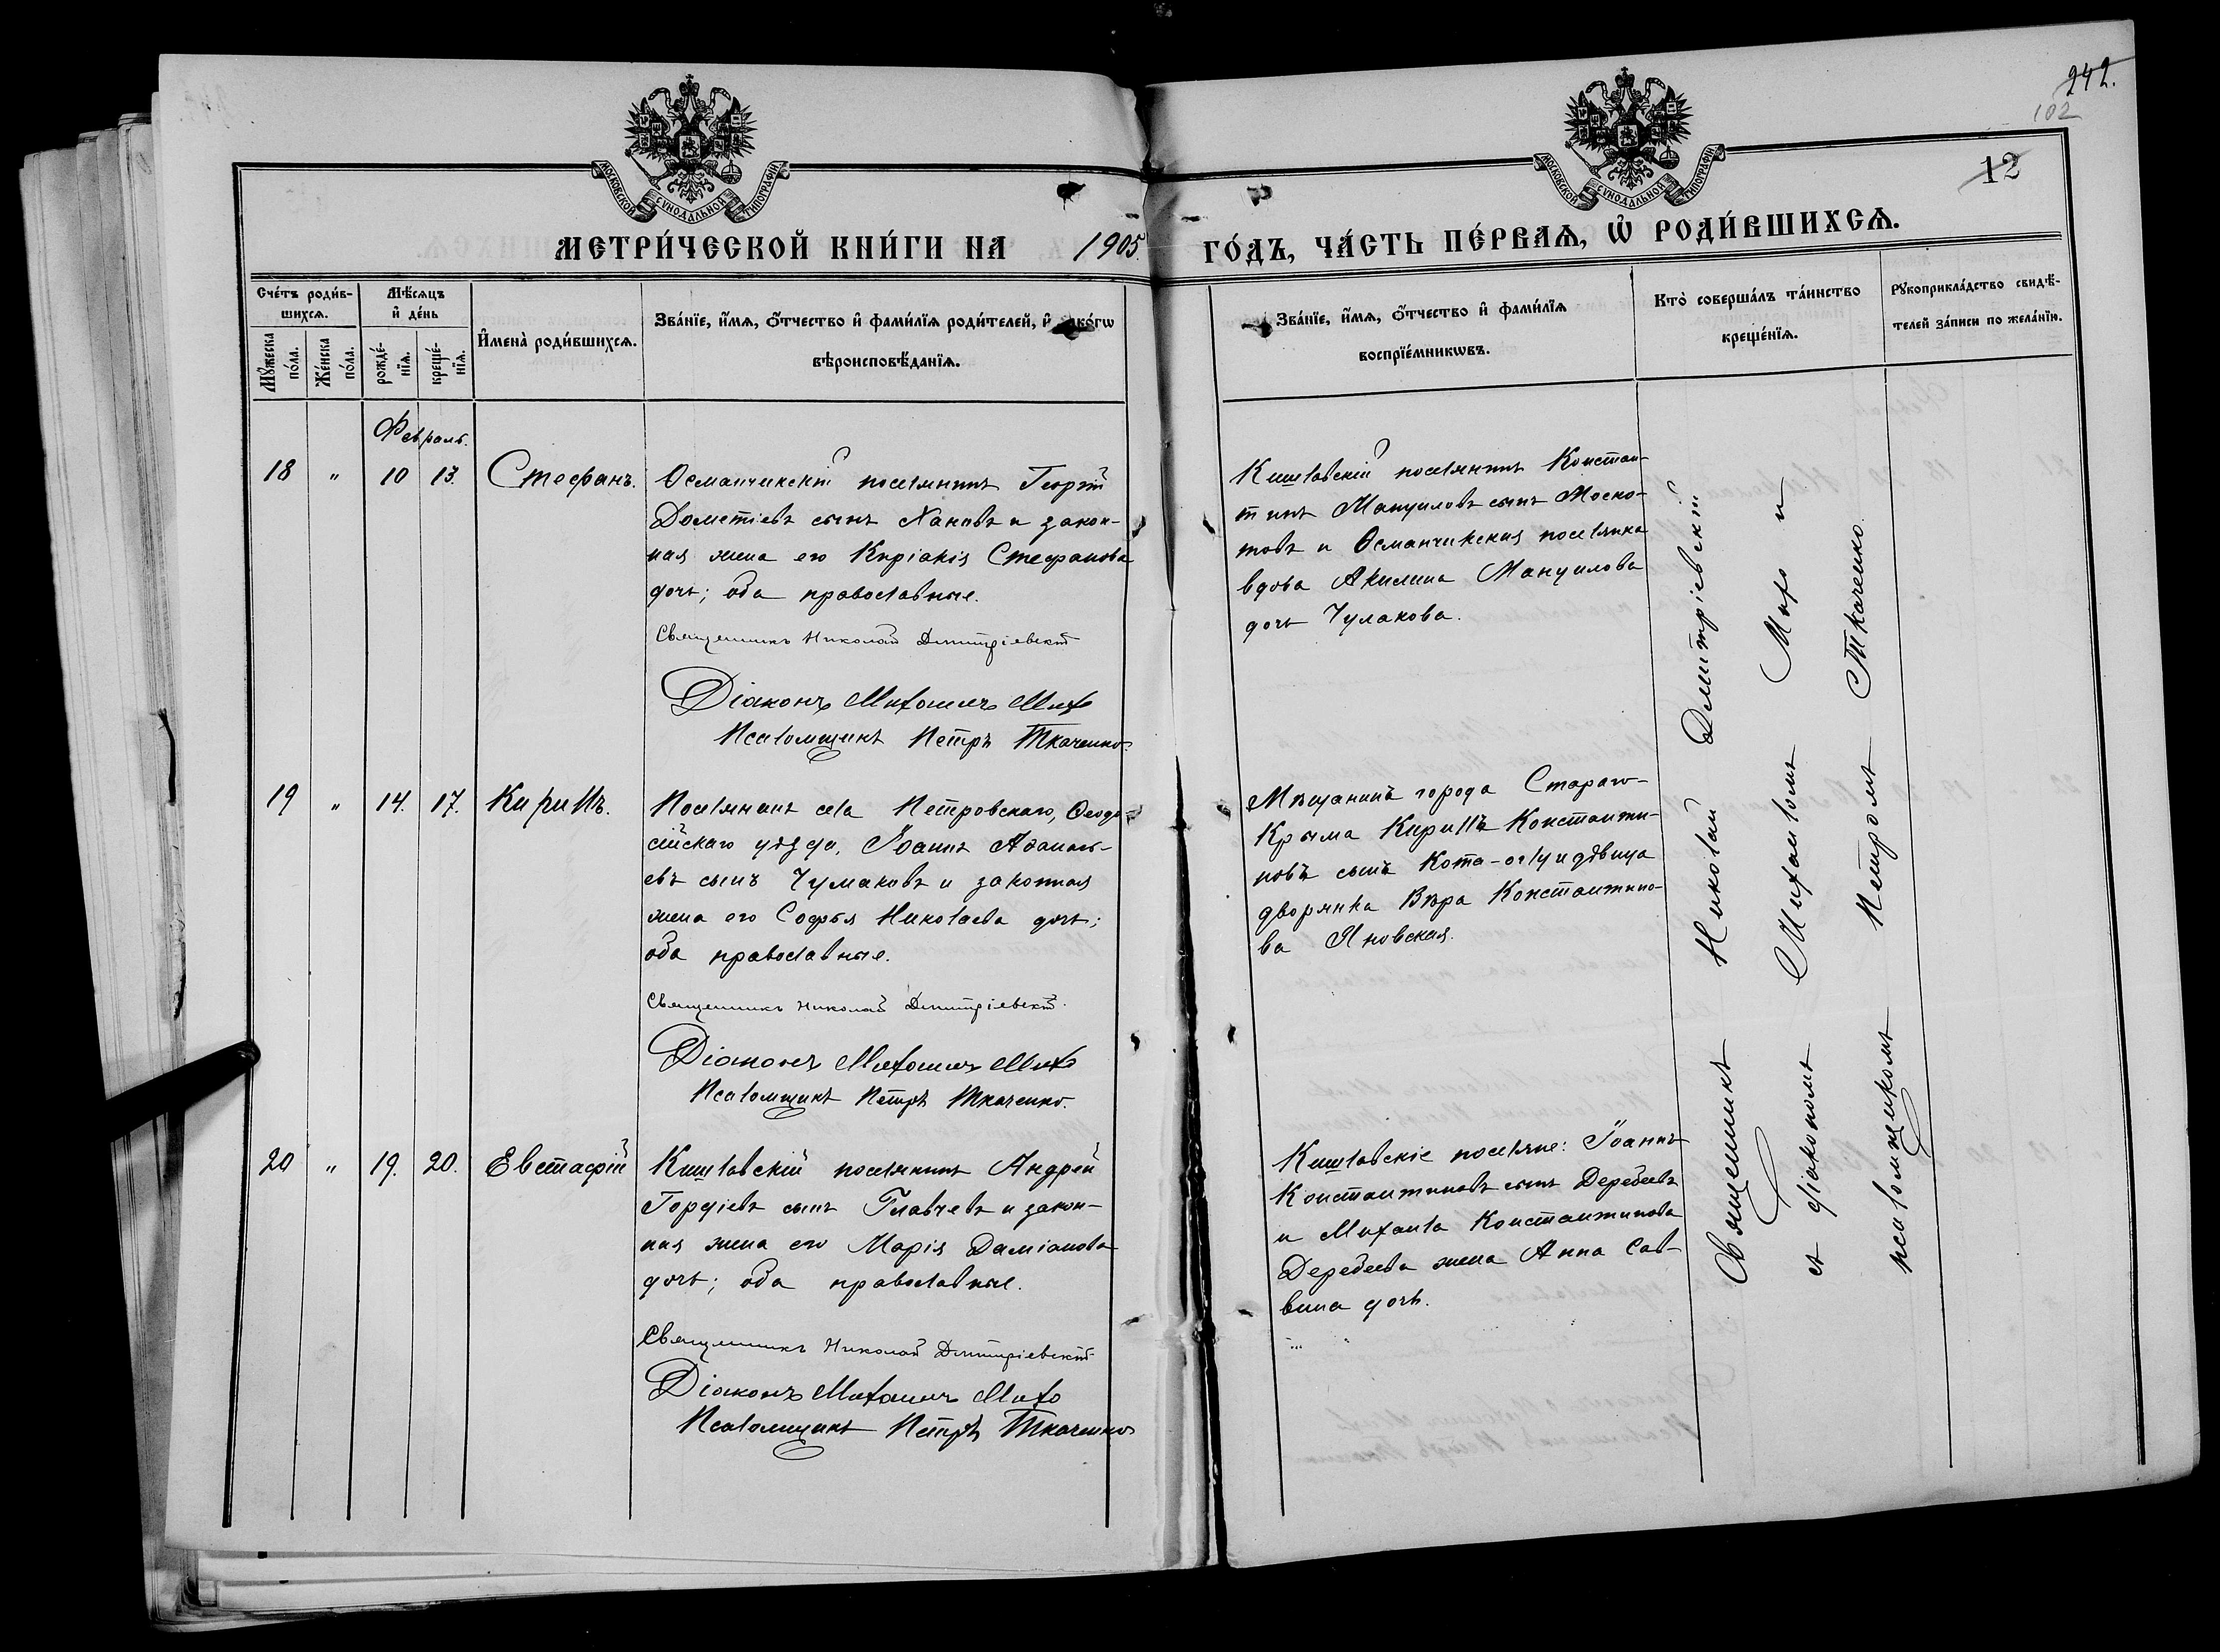 242.
102
12
МОСКОВСКОЙ СѴНОДАЛЬНОЙ ТИПОГРАФІИ
МОСКОВСКОЙ СѴНОДАЛЬНОЙ ТИПОГРАФІИ
МЕТРИ́ЧЕСКОЙ КНИ́ГИ НА 1905 ГО́ДЪ, ЧА́СТЬ ПЕ́РВАѦ, Ѽ РОДИ́ВШИХСѦ.
Сче́тъ роди́в-
шихсѧ.
Мꙋ́жеска по́ла.
Же́нска по́ла.
Мѣ́сѧцъ
и҆ де́нь
рожде́-
нїѧ.
креще́-
нїѧ.
И҆мена̀ роди́вшихсѧ.
Зва́нїе, и҆́мѧ, ѻ҆́тчество и҆ фами́лїѧ роди́телей, и҆
вѣроисповѣ́данїѧ.
Зва́нїе, и҆́мѧ, ѻ҆́тчество и҆ фами́лїѧ
воспрїе́мникѡвъ.
Кто̀ соверша́лъ та́инство
креще́нїѧ.
Рꙋкоприкла́дство свидѣ́-
телей за́писи по жела́нїю.
Февраль.
18 " 10 13. Стефанъ.
Османчикскій поселянинъ Георгій
Дометіевъ сынъ Хановъ и закон-
ная жена его Киріакія Стефанова
дочь; оба православные.
Священникъ Николай Димитріевскій
Діаконъ Михаилъ Михо
Псаломщикъ Петръ Ткаченко
Кишлавскій поселянинъ Констан-
тинъ Мануиловъ сынъ Моско-
товъ и Османчикская поселянка
вдова Акилина Мануилова
дочь Чулакова.
19 " 14. 17. Кириллъ.
Поселянинъ села Петровскаго, Ѳеодо-
сійскаго уѣзда, Іоаннъ Аѳанась-
евъ сынъ Чумаковъ и законная
жена его Софья Николаева дочь;
оба православные.
Священникъ Николай Димитріевскій.
Діаконъ Михаилъ Михо
Псаломщикъ Петръ Ткаченко.
Мѣщанинъ города Стараго-
Крыма Кириллъ Константи-
новъ сынъ Кота-оглу и дѣвица
дворянка Вѣра Константино-
ва Яновская.
20 " 19. 20. Евстафій
Кишлавскій поселянинъ Андрей
Гордіевъ сынъ Главчевъ и закон-
ная жена его Марія Даміанова
дочь; оба православные.
Священникъ Николай Димитріевскій
Діаконъ Михаилъ Михо
Псаломщикъ Петръ Ткаченко
Кишлавскіе поселяне: Іоаннъ
Константиновъ сынъ Деребеевъ
и Михаила Константинова
Деребеева жена Анна Сав-
вина дочь.
Священникъ Николай Димитріевскій
съ діакономъ Михаиломъ Михо и
псаломщикомъ Петромъ Ткаченко.